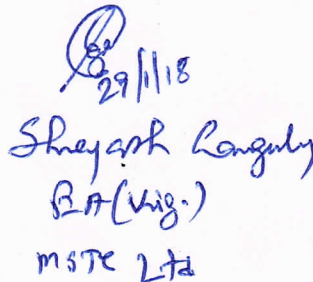 29/1/18
Shreyash Ganguly
EA (Vig.)
MSTC Ltd